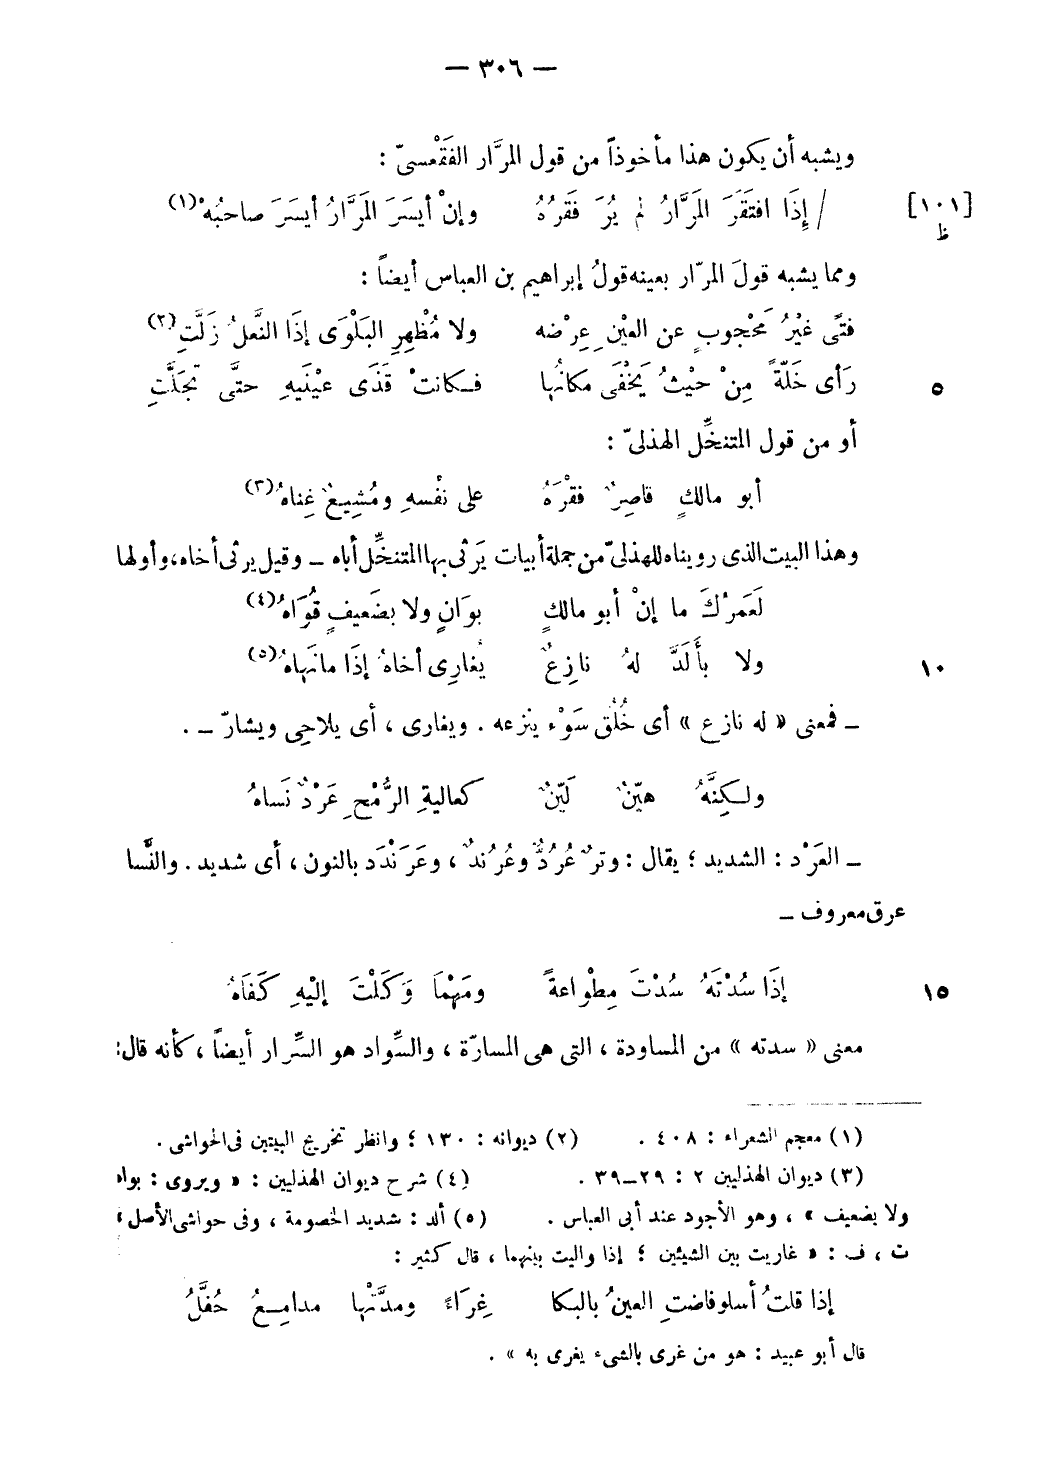 — ٣٠٦ —
ويشبه أن يكون هذا مأخوذاً من قول المرَّار الفَقْعسىّ :
[١٠١] / إِذَا افتَقَرَ المَرَّارُ لم يُرَ فَقرُهُ وإنْ أيسَرَ المَرَّارُ أيسَرَ صاحبُهْ(١)
ظ
ومما يشبه قولَ المرّار بعينه قولُ إبراهيم بن العباس أيضاً :
فتًى غيْرُ مَحْجوبٍ عن العيْنِ عِرْضه ولا مُظْهِرِ البَلْوَى إذَا النَّعلُ زَلَّتِ(٢)
٥ رَأى خَلّةً مِنْ حيْثُ يَخْفَى مكانُها فكانتْ قَذَى عيْنَيهِ حتَّى تجَلَّتِ
أو من قول المتنخِّل الهذلىّ :
أبو مالكٍ قاصِرٌ فقْرَهُ على نفْسهِ ومُشِيعٌ غِناهُ(٣)
وهذا البيت الذى رويناه للهذلىّ من جملة أبيات يَرْثى بها المتنخِّل أباه – وقيل يرثى أخاه، وأولها
لَعَمرْكَ ما إنْ أبو مالكٍ بوَانٍ ولا بضَعيفٍ قُوَاهُ(٤)
١٠ ولا بأَلَدَّ لهُ نازِعٌ يُغارِى أخاهُ إذَا ما نَهاهُ(٥)
– فمعنى « له نازع » أى خُلُق سَوْء ينزعه . ويغارى ، أى يلاحِى ويشارّ – .
ولكِنَّهُ هيّنٌ لَيّنٌ كعاليةِ الرُّمْحِ عَرْدٌ نَساهُ
– العَرْد : الشديد ؛ يقال : وترٌ عُرُدٌّ وعُرُندٌ ، وعَرَنْدَد بالنون ، أى شديد . والنَّسا
عرق معروف –
١٥ إذَا سُدْتَهُ سُدْتَ مِطْواعةً ومَهْمَا وَكَلْتَ إليْهِ كَفَاهُ
معنى « سدته » من المساودة ، التى هى المسارّة ، والسِّواد هو السِّرار أيضاً ، كأنه قال:
(١) معجم الشعراء : ٤٠٨ . (٢) ديوانه : ١٣٠ ؛ وانظر تخريج البيتين فى الحواشى .
(٣) ديوان الهذليين ٢ : ٢٩–٣٩ . (٤) شرح ديوان الهذليين : « ويروى : بواه
ولا بضعيف » ، وهو الأجود عند أبى العباس . (٥) ألد : شديد الخصومة ، وفى حواشى الأصل ،
ت ، ف : « غاريت بين الشيئين ؛ إذا واليت بينهما ، قال كثير :
إذا قلتُ أسلو فاضتِ العينُ بالبكا غِرَاءً ومدَّتْها مدامعُ حُفَّلُ
قال أبو عبيد : هو من غرى بالشىء يغرى به » .